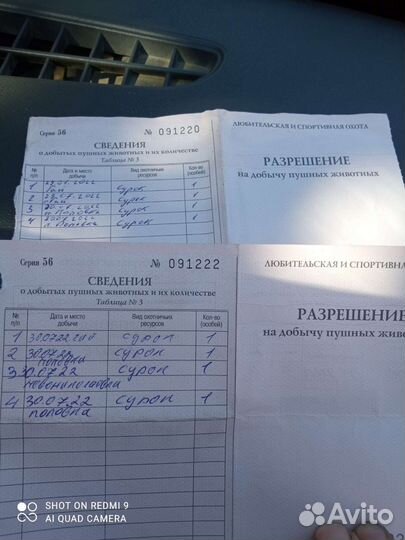 Серия 56 № 091220
СВЕДЕНИЯ
о добытых пушных животных и их количестве
Таблица № 3
№ п/п Дата и место добычи Вид охотничьих ресурсов Кол-во (особей)
1 сурок 1
2 сурок 1
сурок 1
4 п. Поповка сурок 1
ЛЮБИТЕЛЬСКАЯ И СПОРТИВНАЯ ОХОТА
РАЗРЕШЕНИЕ
на добычу пушных животных
Серия 56 № 091222
СВЕДЕНИЯ
о добытых пушных животных и их количестве
Таблица № 3
№ п/п Дата и место добычи Вид охотничьих ресурсов Кол-во (особей)
1 30.07.22 сурок 1
2 30.07.22 поповка сурок 1
3 30.07.22 сурок 1
4 30.07.22 поповка сурок 1
ЛЮБИТЕЛЬСКАЯ И СПОРТИВНА
РАЗРЕШЕНИ
на добычу пушных живот
SHOT ON REDMI 9
AI QUAD CAMERA
Avito